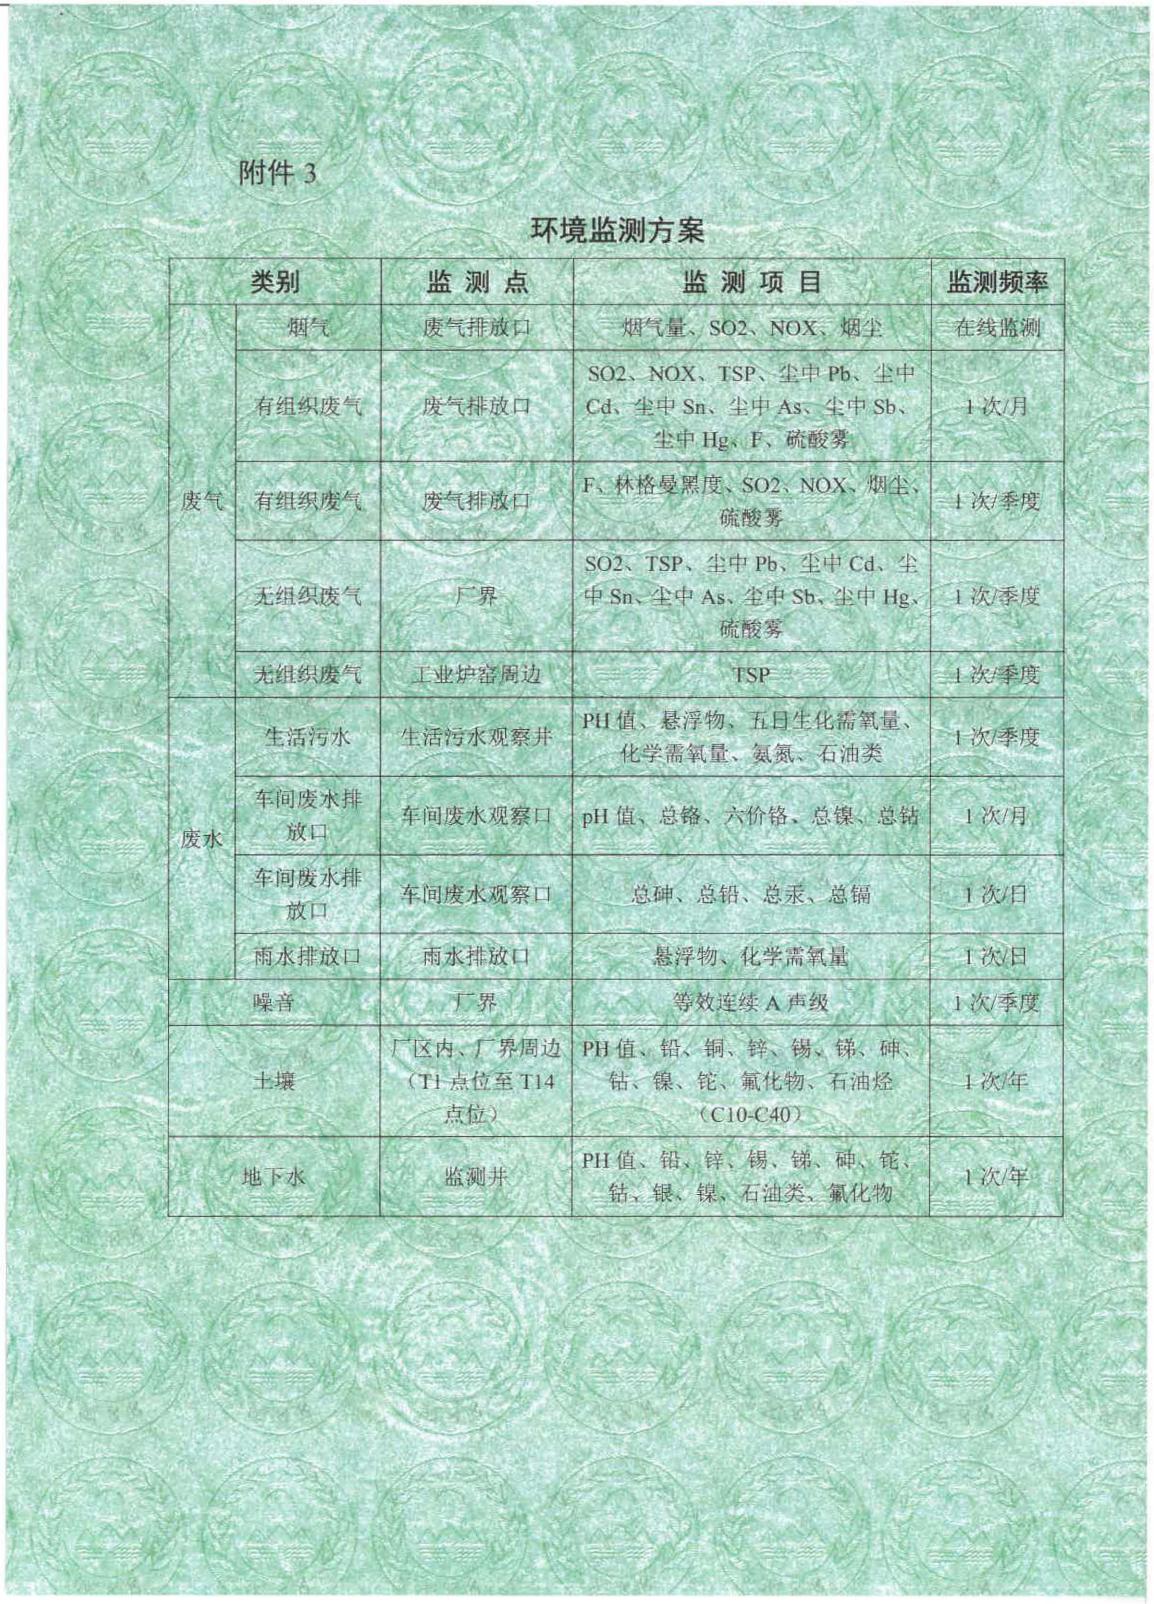 附件 3
环境监测方案
类别 监 测 点 监 测 项 目 监测频率
废气
烟气 废气排放口 烟气量、SO2、NOX、烟尘 在线监测
有组织废气 废气排放口 SO2、NOX、TSP、尘中 Pb、尘中
Cd、尘中 Sn、尘中 As、尘中 Sb、
尘中 Hg、F、硫酸雾
1 次/月
有组织废气 废气排放口 F、林格曼黑度、SO2、NOX、烟尘、
硫酸雾
1 次/季度
无组织废气 厂界 SO2、TSP、尘中 Pb、尘中 Cd、尘
中 Sn、尘中 As、尘中 Sb、尘中 Hg、
硫酸雾
1 次/季度
无组织废气 工业炉窑周边 TSP 1 次/季度
废水
生活污水 生活污水观察井 PH 值、悬浮物、五日生化需氧量、
化学需氧量、氨氮、石油类
1 次/季度
车间废水排
放口
车间废水观察口 pH 值、总铬、六价铬、总镍、总钴 1 次/月
车间废水排
放口
车间废水观察口 总砷、总铅、总汞、总镉 1 次/日
雨水排放口 雨水排放口 悬浮物、化学需氧量 1 次/日
噪音 厂界 等效连续 A 声级 1 次/季度
土壤
厂区内、厂界周边
（T1 点位至 T14
点位）
PH 值、铅、铜、锌、锡、锑、砷、
钴、镍、铊、氟化物、石油烃
（C10-C40）
1 次/年
地下水 监测井 PH 值、铅、锌、锡、锑、砷、铊、
钴、银、镍、石油类、氟化物
1 次/年